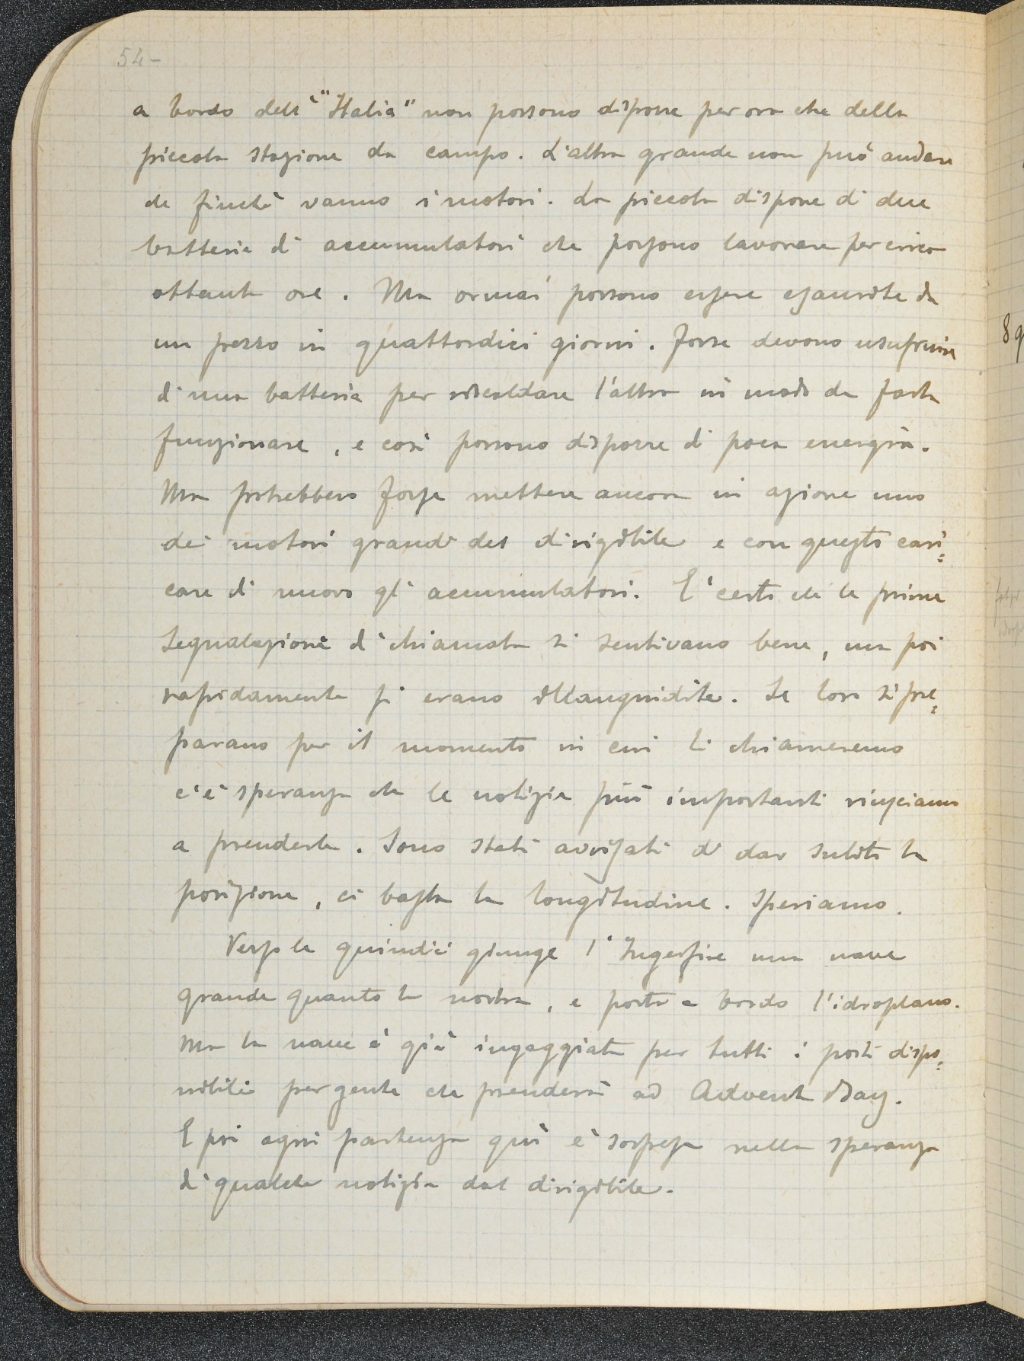 54-
a bordo dell'"Italia" non possono disporre per ora che della
piccola stazione da campo. L'altra grande non può andare
che finchè vanno i motori. La piccola dispone di due
batterie di accumulatori che possono lavorare per circa
ottanta ore. Ma ormai possono essere esaurite da
un pezzo in quattordici giorni. Forse devono usufruire
di una batteria per riscaldare l'altra in modo da farla
funzionare, e così possono disporre di poca energia.
Ma potrebbero forse mettere ancora in azione uno
dei motori grandi del dirigibile e con questo cari=
care di nuovo gli accumulatori. E' certo che le prime
segnalazioni di chiamata si sentivano bene, ma poi
rapidamente si erano illanguidite. Se loro si pre=
parano per il momento in cui li chiameremo
c'è speranza che le notizie più importanti riusciamo
a prenderle. Sono stati avvisati di dar subito la
posizione, ci basta la longitudine. Speriamo.
Verso le quindici giunge l'Ingerfire una nave
grande quanto la nostra, e porta a bordo l'idroplano.
Ma la nave è già ingaggiata per tutti i posti dispo=
nibili per gente che prenderà ad Advent Bay.
E poi ogni partenza qui è sospesa nella speranza
di qualche notizia dal dirigibile.
8 g